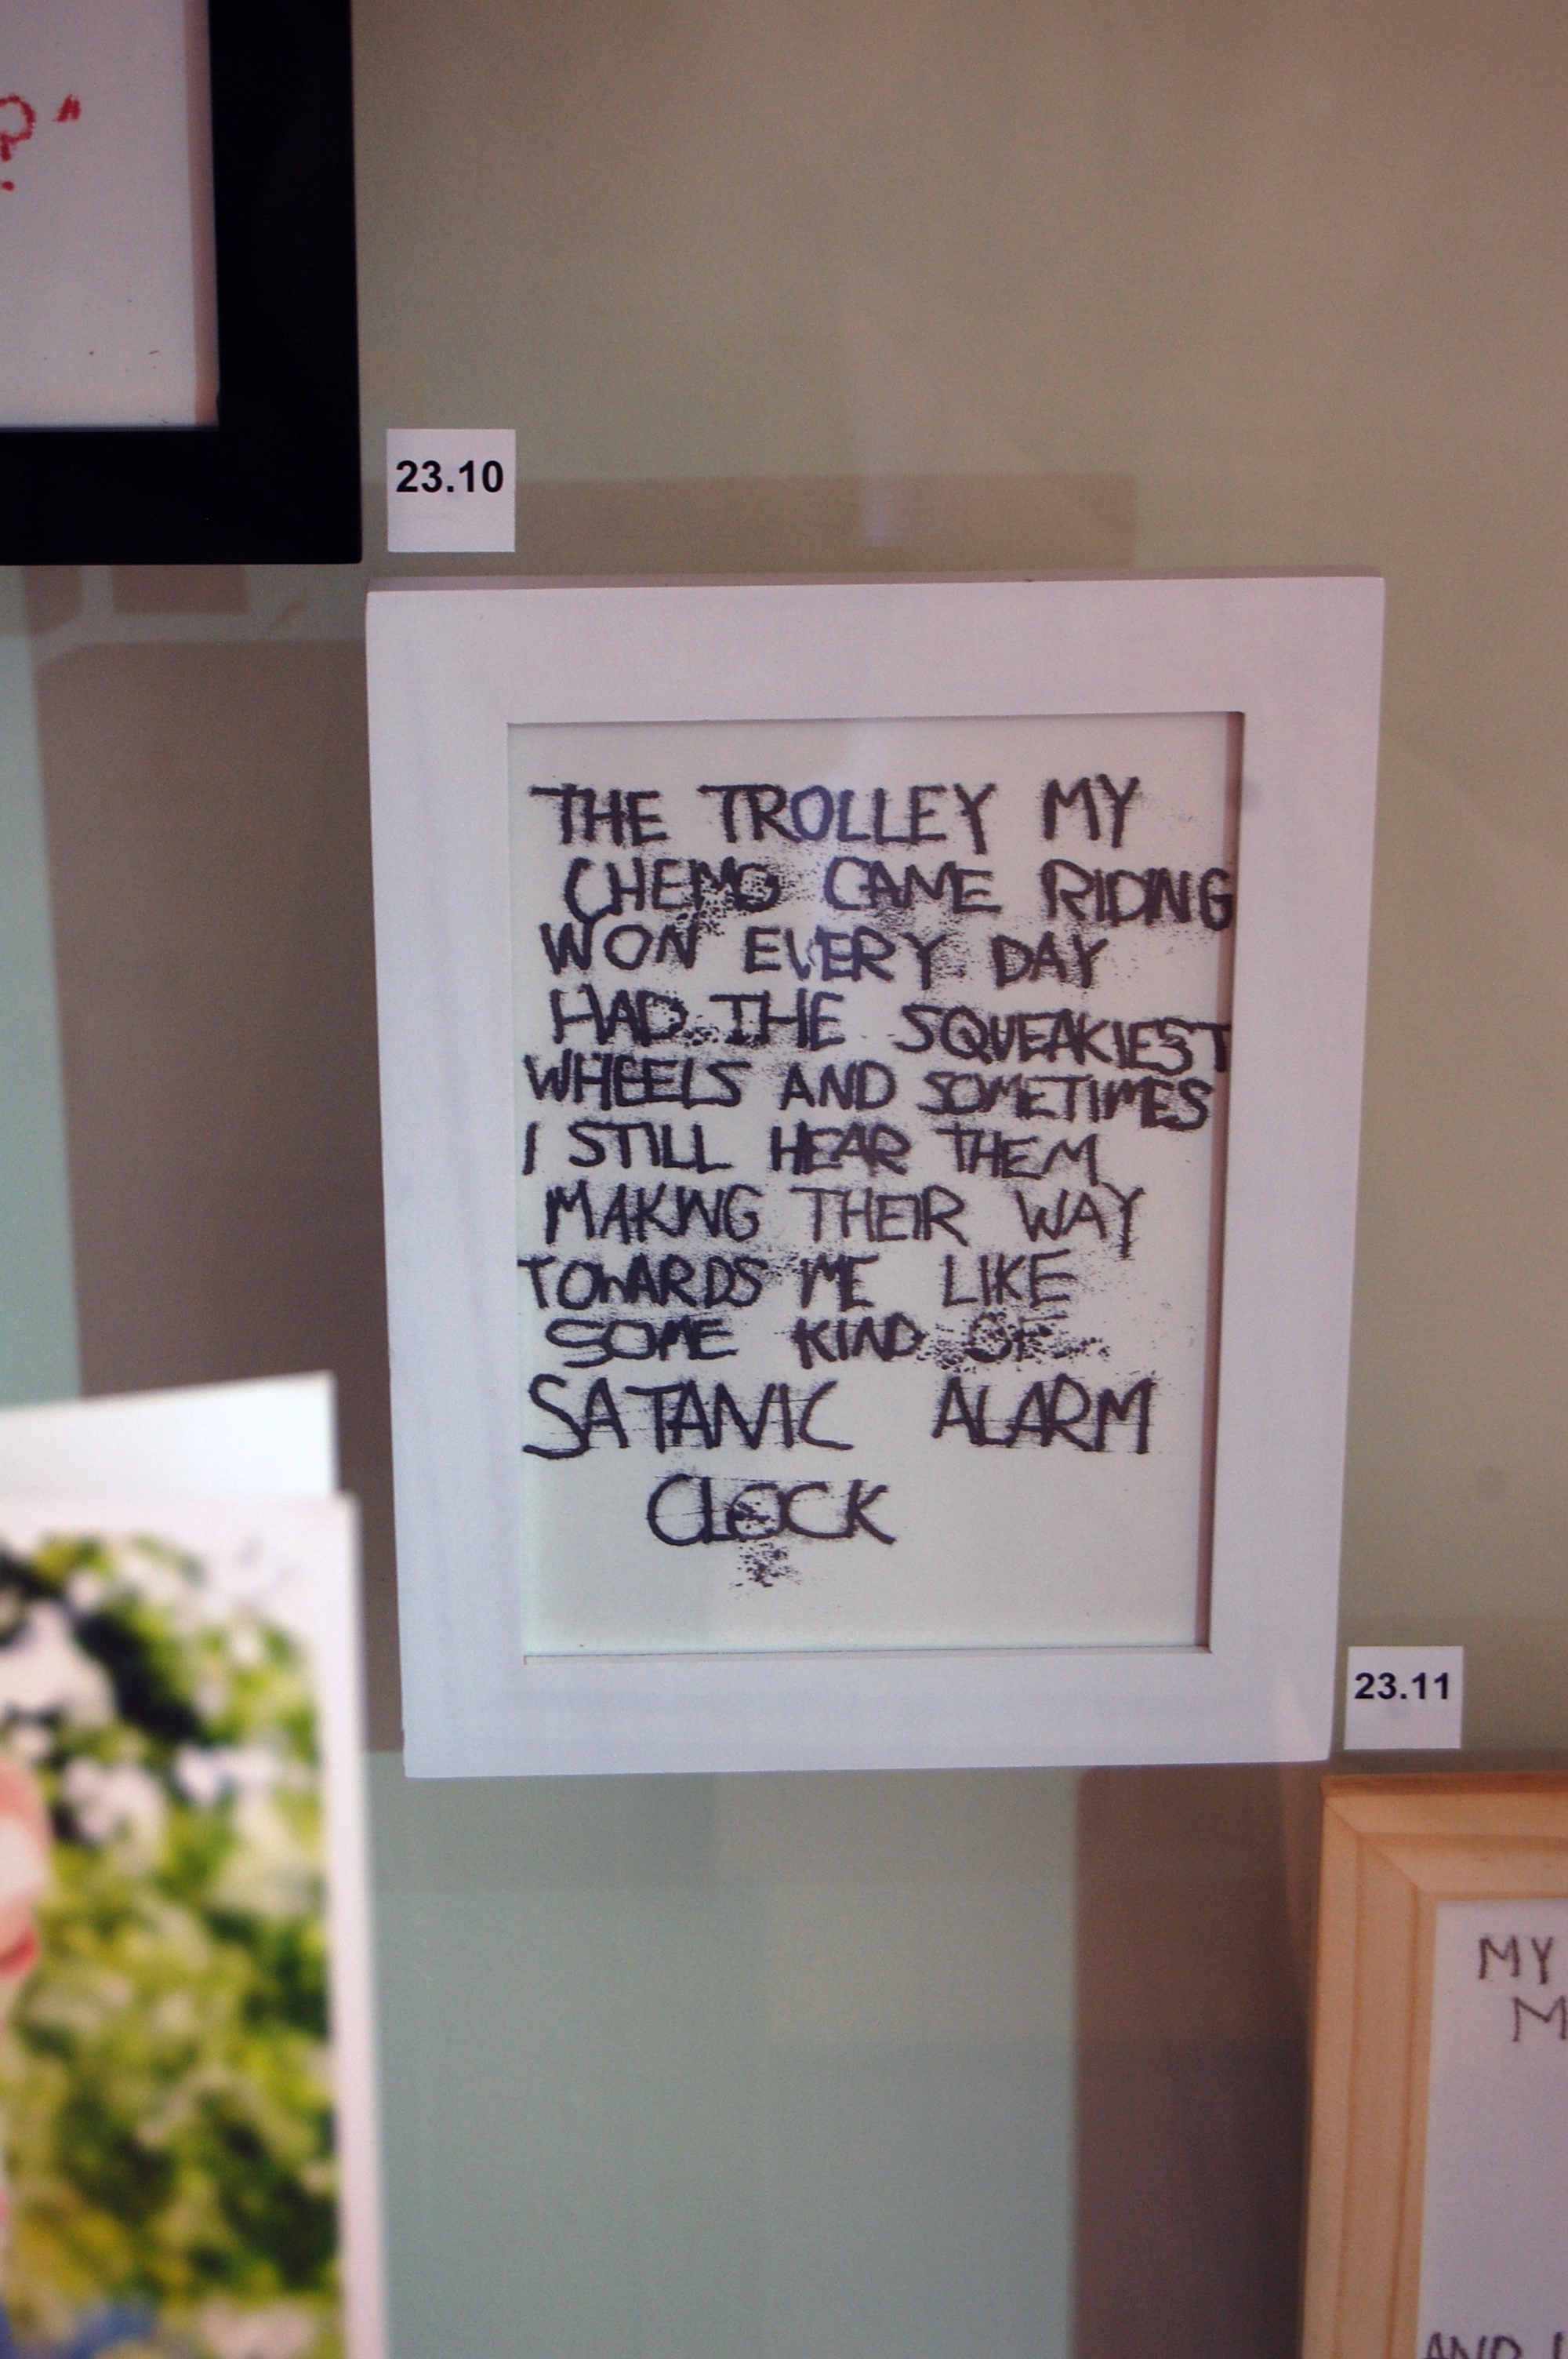 ?"
23.10
THE TROLLEY MY
CHEMO CAME RIDING
WON EVERY DAY
HAD THE SQUEAKIEST
WHEELS AND SOMETIMES
I STILL HEAR THEM
MAKING THEIR WAY
TOWARDS ME LIKE
SOME KIND OF
SATANIC ALARM
CLOCK
23.11
MY
M
AND